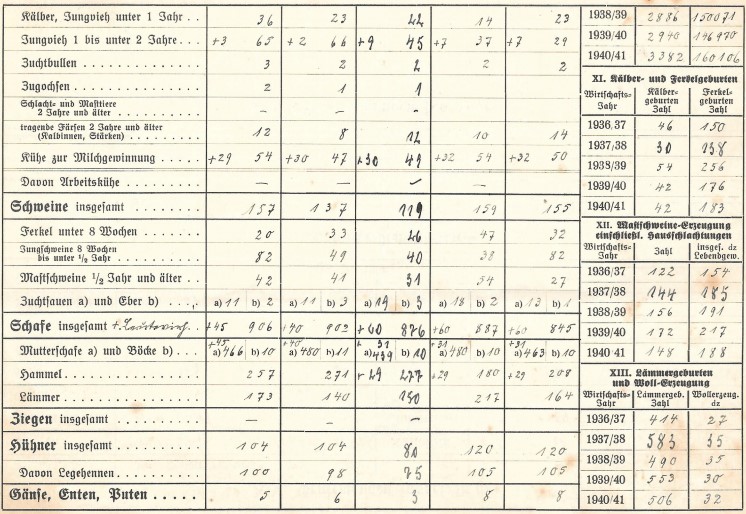 Kälber, Jungvieh unter 1 Jahr . . 36 23 22 14 23
Jungvieh 1 bis unter 2 Jahre . . . +3 65 +2 66 +9 45 +7 37 +7 29
Zuchtbullen . . . 3 2 2 2 2
Zugochsen . . . 2 1 1
Schlacht- und Masttiere
2 Jahre und älter . . . – – –
tragende Färsen 2 Jahre und älter
(Kalbinnen, Stärken) . . . 12 8 12 10 14
Kühe zur Milchgewinnung . . . +29 54 +30 47 +30 49 +32 54 +32 50
Davon Arbeitskühe . . . – – – – –
Schweine insgesamt . . . 157 137 119 159 155
Ferkel unter 8 Wochen . . . 20 33 26 47 32
Jungschweine 8 Wochen
bis unter ½ Jahr . . . 82 49 40 38 82
Mastschweine ½ Jahr und älter . . 42 41 31 54 27
Zuchtsauen a) und Eber b) . . . a) 11 b) 2 a) 11 b) 3 a) 19 b) 3 a) 18 b) 2 a) 13 b) 1
Schafe insgesamt +45 906 +40 902 +60 876 +60 887 +60 845
+45 +40 31 +31 +31
Mutterschafe a) und Böcke b) . . a) 466 b) 10 a) 480 b) 11 a) 439 b) 10 a) 480 b) 10 a) 463 b) 10
Hammel . . . 257 271 +29 277 +29 180 +29 208
Lämmer . . . 173 140 150 217 164
Ziegen insgesamt . . . – – –
Hühner insgesamt . . . 104 104 80 120 120
Davon Legehennen . . . 100 98 75 105 105
Gänse, Enten, Puten . . . . . 5 6 3 8 8
1938/39 2886 150071
1939/40 2940 146970
1940/41 3382 160106
XI. Kälber- und Ferkelgeburten
Wirtschafts-Jahr Kälber-geburten Zahl Ferkel-geburten Zahl
1936/37 46 150
1937/38 30 138
1938/39 54 256
1939/40 42 176
1940/41 42 183
XII. Mastschweine-Erzeugung
einschließl. Hausschlachtungen
Wirtschafts-Jahr Zahl insges. dz Lebendgew.
1936/37 122 154
1937/38 144 185
1938/39 156 191
1939/40 172 217
1940 41 148 188
XIII. Lämmergeburten
und Woll-Erzeugung
Wirtschafts-Jahr Lämmergeb. Zahl Wollerzeug. dz
1936/37 414 27
1937/38 583 35
1938/39 490 35
1939/40 553 30
1940/41 506 32